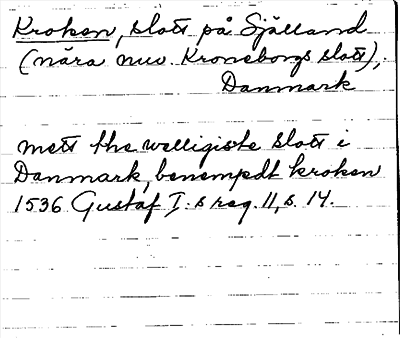 Kroken, slott på Själland
(nära nuv. Kroneborgs slott),
Danmark
mett the welligiste slott i
Danmark, benempdt kroken
1536 Gustaf I:s reg. 11, s. 14.